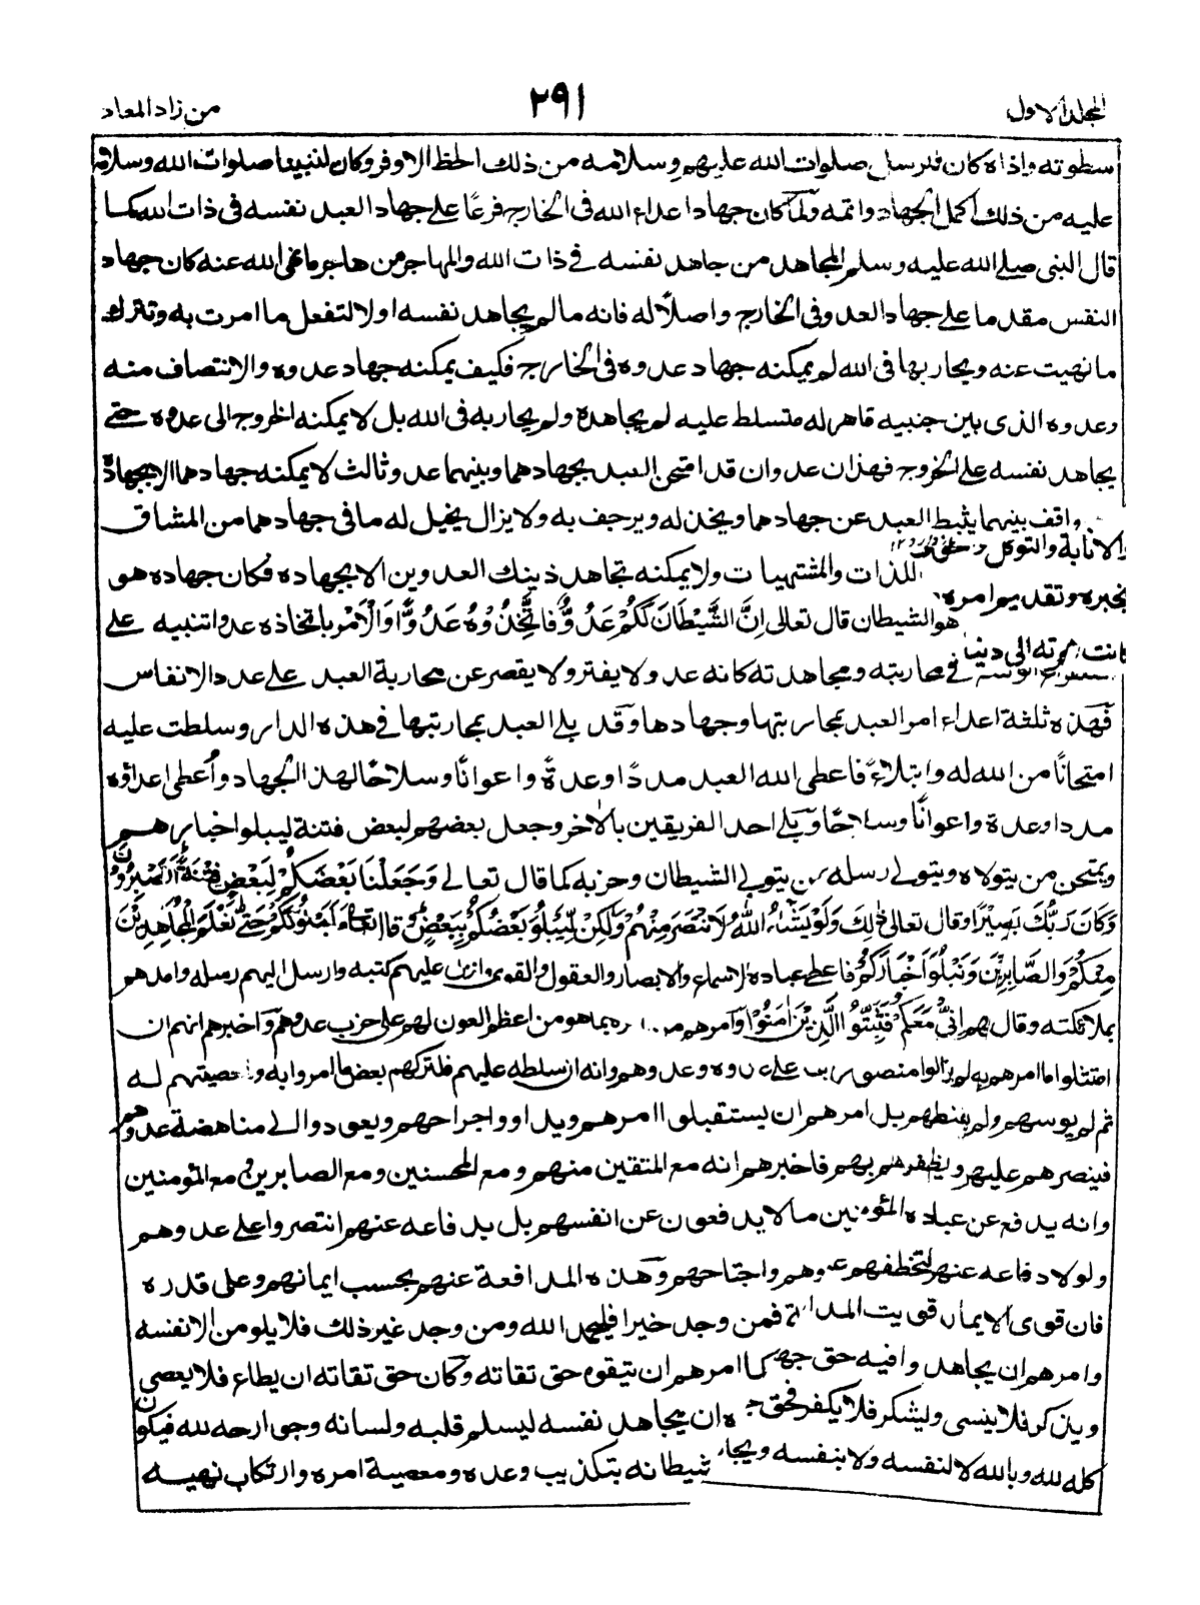 المجلد الاول
٢٩١
من زاد المعاد
سطوته واذاه كان للرسل صلوات الله عليهم وسلامه من ذلك الحظ الاوفر وكان لنبينا صلوات الله وسلامه
عليه من ذلك اكمل الجهاد واتمه ولما كان جهاد اعداء الله في الخارج فرعًا على جهاد العبد نفسه في ذات الله كما
قال النبى صلى الله عليه وسلم المجاهد من جاهد نفسه في ذات الله والمهاجر من هاجر ما نهى الله عنه كان جهاد
النفس مقدما على جهاد العدو فى الخارج واصلًا له فانه مالم يجاهد نفسه اولا لتفعل ما امرت به وتترك
ما نهيت عنه ويحاربها فى الله لم يمكنه جهاد عدوه فى الخارج فكيف يمكنه جهاد عدوه والانتصاف منه
وعدوه الذى بين جنبيه قاهر له متسلط عليه لم يجاهده ولم يحاربه فى الله بل لا يمكنه الخروج الى عدوه حتى
يجاهد نفسه على الخروج فهذان عدوان قد امتحن العبد بجهادهما وبينهما عدو ثالث لا يمكنه جهادهما الا بجهاده
واقف بينهما يثبط العبد عن جهادهما ويخذله ويرجف به ولا يزال يخيل له ما فى جهادهما من المشاق
والانابة والتوكل
اللذات والمشتهيات ولا يمكنه تجاهد ذينك العدوين الا بجهاده فكان جهاده هو
بخبره وتقديم امره
هو الشيطان قال تعالى اِنَّ الشَّيْطَانَ لَكُمْ عَدُوٌّ فَاتَّخِذُوْهُ عَدُوًّا وَالْاَمْر باتخاذه عدوا تنبيه على
كانت هجرته الى دنيا
فى محاربته ومجاهدته كانه عدو لا يفتر ولا يقصر عن محاربة العبد على عدد الانفاس
فهذه ثلثة اعداء امر العبد بمحاربتها وجهادها وقد بلى العبد بمحاربتها فى هذه الدار وسلطت عليه
امتحانًا من الله له وابتلاءً فاعطى الله العبد مددًا وعدةً واعوانًا وسلاحًا لهذا الجهاد واُعطى اعداؤه
مددا وعدة واعوانًا وسلاحًا وبلى احد الفريقين بالآخر وجعل بعضهم لبعض فتنة ليبلو اخبارهم
ويمتحن من يتولاه ويتولى رسله ممن يتولى الشيطان وحزبه كما قال تعالى وَجَعَلْنَا بَعْضَكُمْ لِبَعْضٍ فِتْنَةً اَتَصْبِرُوْنَ
وَكَانَ رَبُّكَ بَصِيْرًا وقال تعالى ذٰلِكَ وَلَوْ يَشَآءُ اللّٰهُ لَانْتَصَرَ مِنْهُمْ وَلٰكِنْ لِّيَبْلُوَ بَعْضَكُمْ بِبَعْضٍ وقال تعالى وَلَنَبْلُوَنَّكُمْ حَتّٰى نَعْلَمَ الْمُجَاهِدِيْنَ
مِنْكُمْ وَالصَّابِرِيْنَ وَنَبْلُوَا اَخْبَارَكُمْ فاعطى عباده الاسماع والابصار والعقول والقوى وانزل عليهم كتبه وارسل اليهم رسله وامدهم
بملائكته وقال لهم اِنِّىْ مَعَكُمْ فَثَبِّتُوا الَّذِيْنَ اٰمَنُوْا وامرهم من امره بما هو من اعظم العون لهم على حزب عدوهم واخبرهم انهم ان
امتثلوا ما امرهم به لم يزالوا منصورين على عدوه وعدوهم وانه ان سلطه عليهم فلتركهم بعض ما امروا به ولمعصيتهم له
ثم لم يويسهم ولم يقنطهم بل امرهم ان يستقبلوا امرهم ويداووا جراحهم ويعودوا الى مناهضة عدوهم
فينصرهم عليهم ويظفرهم بهم فاخبرهم انه مع المتقين منهم ومع المحسنين ومع الصابرين ومع المؤمنين
وانه يدفع عن عباده المؤمنين مالا يدفعون عن انفسهم بل بدفاعه عنهم انتصروا على عدوهم
ولولا دفاعه عنهم لتخطفهم عدوهم واجتاحهم وهذه المدافعة عنهم بحسب ايمانهم وعلى قدره
فان قوى الايمان قويت المدافعة فمن وجد خيرا فليحمد الله ومن وجد غير ذلك فلا يلومن الا نفسه
وامرهم ان يجاهدوا فيه حق جهاده كما امرهم ان يتقوه حق تقاته وكان حق تقاته ان يطاع فلا يعصى
ويذكر فلا ينسى وليشكر فلا يكفر فحق جهاده ان يجاهد نفسه ليسلم قلبه ولسانه وجوارحه لله فيكون
كله لله وبالله لا لنفسه ولا بنفسه ويجاهد شيطانه بتكذيب وعده ومعصية امره وارتكاب نهيه